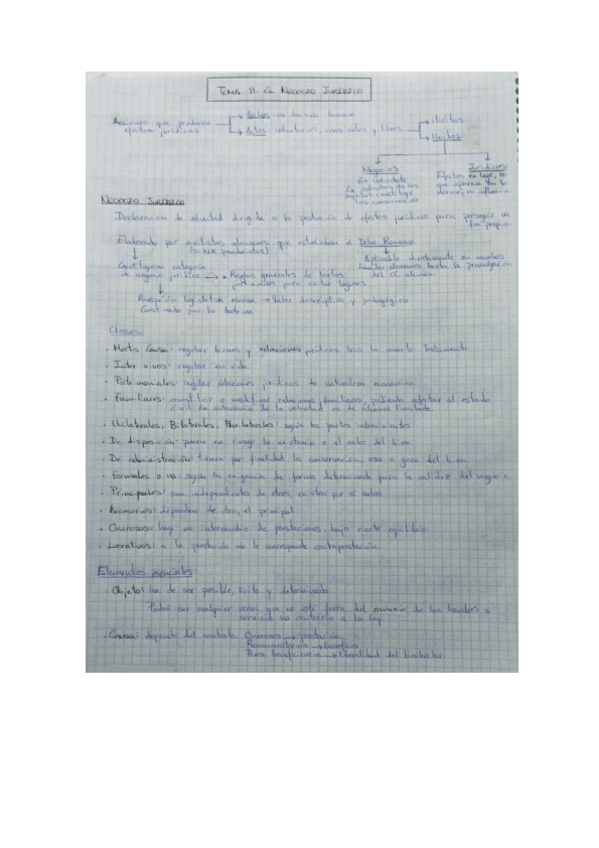 TEMA 11. EL NEGOCIO JURÍDICO
Acciones que producen efectos jurídicos
Hechos: no decisión humana
Actos: voluntarios, conscientes y libres
ilícitos
lícitos
Negocios
Jurídicos:
NEGOCIO JURÍDICO
Declaración de voluntad dirigida a la producción de efectos jurídicos para perseguir un fin propio.
Elaborado por juristas alemanes que estudiaban el Derecho Romano
(S. XIX pandectistas)
Constituyeron categoría de negocio jurídico
Reglas generales de textos justinianos para evitar lagunas
Aplicable directamente en muchos
hasta la promulgación
del CC alemán.
Recepción legislativa escasa → Valor descriptivo y pedagógico.
Continuado por la doctrina
Clases:
· Mortis Causa: regular bienes y relaciones jurídicas tras la muerte. Testamento
· Inter vivos: regular en vida.
· Patrimoniales: regular relaciones jurídicas de naturaleza económica
· Familiares: constituir o modificar relaciones familiares, pudiendo afectar al estado
civil. La autonomía de la voluntad es de alcance limitado
· Unilaterales, Bilaterales, Plurilaterales: según las partes intervinientes
· De disposición: ponen en riesgo la existencia o el valor del bien.
· De administración: tienen por finalidad la conservación, uso o goce del bien.
· Formales o no: según la exigencia de forma determinada para la validez del negocio
· Principales: son independientes de otros, existen por sí solos
· Accesorios: dependen de otro, el principal
· Onerosos: hay un intercambio de prestaciones, bajo cierto equilibrio.
· Lucrativos: a la prestación no le corresponde contraprestación.
Elementos esenciales:
· Objeto: ha de ser posible, lícito y determinado.
Podrá ser cualquier cosa que no esté fuera del comercio de los hombres o
servicio no contrario a la ley.
· Causa: depende del contrato. Onerosos → prestación
Remuneratorios → beneficio
Pura beneficencia → liberalidad del bienhechor.